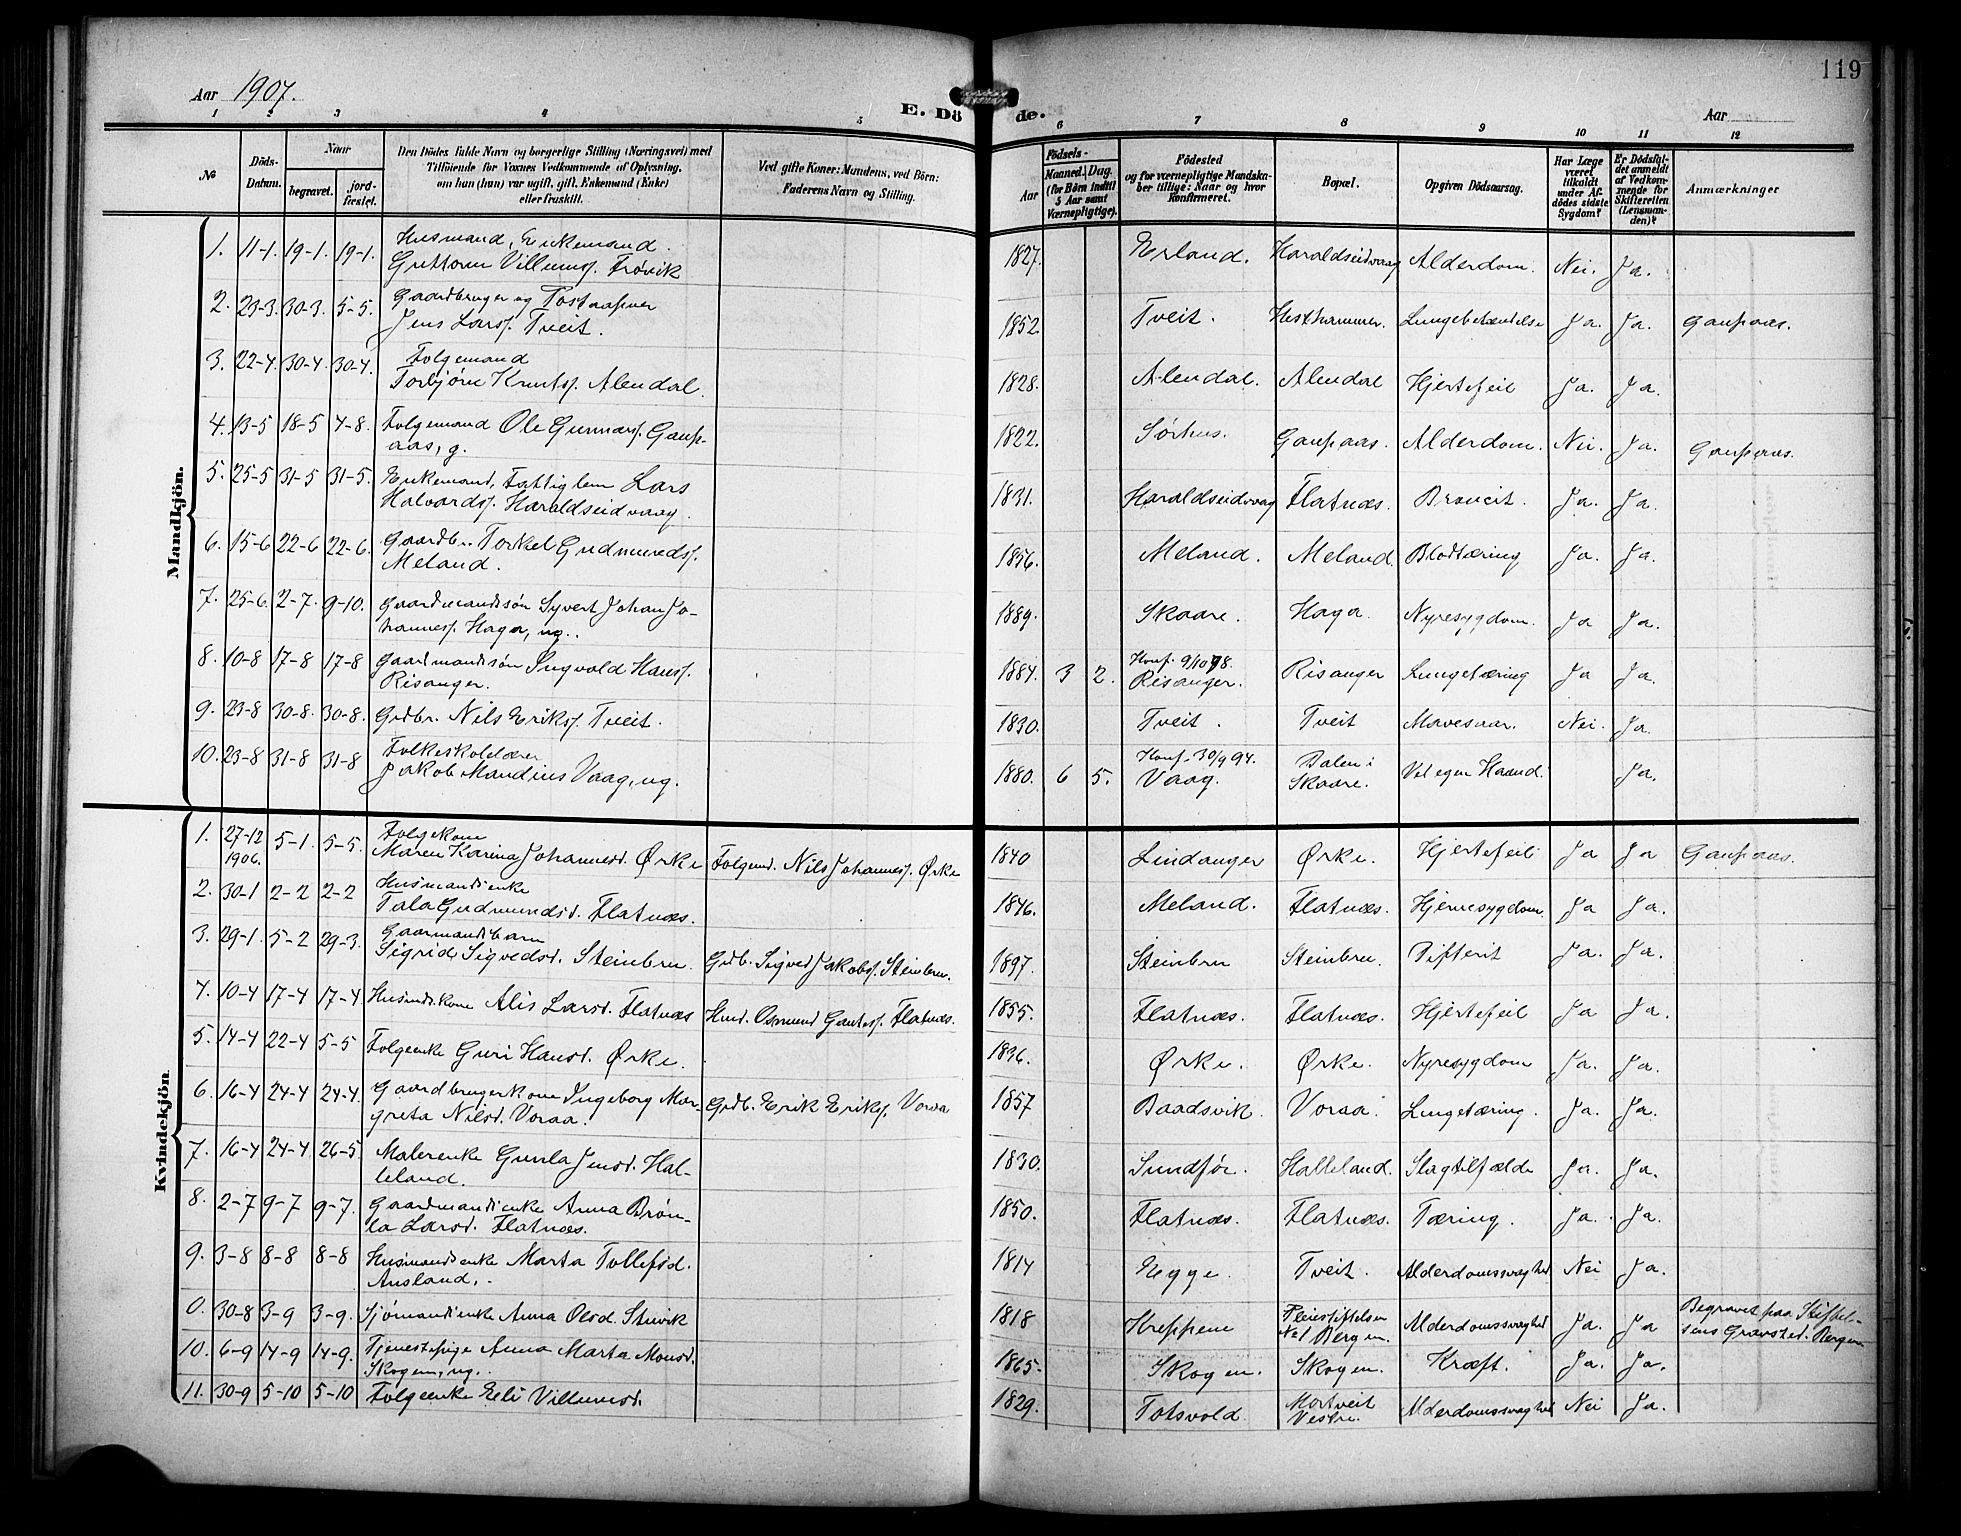 119
Aar 1907.
E. Döde.
Aar
1 2 3 4 5 6 7 8 9 10 11 12
No
Döds-Datum.
Naar
begravet.
jord-fæstet.
Den Dödes fulde Navn og borgerlige Stilling (Næringsvei) med
Tilföiende for Voxnes Vedkommende af Oplysning,
om han (hun) var ugift, gift, Enkemand (Enke)
eller fraskilt.
Ved gifte Koner: Mandens, ved Börn:
Faderens Navn og Stilling.
Födsels-
Aar
Maaned. Dag.
(for Börn indtil
5 Aar samt
Værnepligtige).
Födested
og for værnepligtige Mandska-
ber tillige: Naar og hvor
konfirmeret.
Bopæl.
Opgiven Dödsaarsag.
Har Læge
været
tilkaldt
under Af-
dödes sidste
Sygdom?
Er Dödsfal-
det anmeldt
af Vedkom-
mende for
Skifteretten
(Lensman-
den)?
Anmærkninger
Mandkjön.
1. 11-1 19-1. 19-1. Husmand, Enkemand.
Guttorm Villumss. Frøvik 1827. Erland. Haraldseidvaag Alderdom. Nei. Ja.
2. 23-3. 30-3. 5-5. Gaardbruger og Postaapner
Jens Larss. Tveit. 1852 Tveit. Hesthammer. Lungebetændelse Ja. Ja. Gaupaas.
3. 22-4. 30-4. 30-4. Folgemand
Torbjörn Knuts. Alendal. 1828. Alendal. Alendal Hjertefeil Ja. Ja.
4. 13-5 18-5 4-8. Folgemand Ole Gunnars. Gaup-
aas, g. 1822. Sørhus. Gaupaas. Alderdom. Nei. Ja. Gaupaas.
5. 25-5 31-5 31-5. Enkemand, Fattiglem Lars
Halvards. Haraldseidvaag. 1831. Haraldseidvaag Flatnæs. Brancit. Ja. Ja.
6. 15-6 22-6 22-6. Gaardb. Torkel Gudmunds.
Meland. 1856. Meland. Meland. Blodtæring Ja. Ja.
7. 25-6. 2-7. 9-10. Gaardmandssön Syvert Johan Jo-
hanness. Haga, ug. 1889. Skaare. Haga. Nyresygdom. Ja Ja.
8. 10-8 17-8 17-8 Gaardmandssön Ingvald Hans.
Risanger. 1884. 3 2. Konf. 9/10 98.
Risanger. Risanger Lungetæring Ja Ja.
9. 23-8 30-8. 30-8. Grdbr. Nils Eriks. Tveit. 1830. Tveit. Tveit Mavesaar. Nei. Ja.
10. 23-8 31-8 31-8 Folkeskolelærer
Jakob Mandius Vaag, ug. 1880. 6 5. Konf. 30/9 94.
Vaag. Dalen i
Skaare. Ved egen Haand. Ja.
Kvindekjön.
1. 27-12
1906. 5-1. 5-5. Folgekone
Maren Karina Johannesd. Ørke Folgmd. Nils Johanness. Ørke 1840 Lindanger Ørke. Hjertefeil Ja Ja Gaupaas.
2. 30-1 2-2 2-2 Husmandsenke
Tala Gudmundsd. Flatnæs. 1846. Meland. Flatnæs. Hjernesygdom Ja Ja.
3. 29-1. 5-2 29-3. Gaarmandsbarn
Sigrid Sigvedsd. Steinbru. Grdb. Sigved Jakobs. Steinbru. 1897. Steinbru Steinbru. Difterit Ja. Ja.
4. 10-4 17-4 17-4. Husmdskone Alis Larsd. Flatnæs Hmd. Osmund Gautes. Flatnæs. 1855. Flatnæs. Flatnæs. Hjertefeil Ja Ja.
5. 14-4 22-4 5-5 Folgeenke Guri Hansd. Ørke. 1836. Ørke. Ørke. Nyresygdom Ja. Ja.
6. 16-4 24-4 24-4. Gaardbrugerkone Ingeborg Mar-
greta Nilsd. Voraa. Grdb. Erik Eriks. Voraa 1857 Baadsvik. Voraa. Lungetæring. Ja. Ja.
7. 16-4 24-4. 26-5. Malerenke Gunla Jensd. Hal-
leland. 1830. Sundför. Halleland. Slagtilfælde Ja. Ja.
8. 2-7 9-7 9-7. Gaardmandsenke Anna Brøn-
la Larsd. Flatnæs. 1850. Flatnæs. Flatnæs. Tæring. Ja. Ja.
9. 3-8 8-8 8-8 Husmandsenke Marta Tollefsd.
Ausland. 1814 Egge. Tveit. Alderdomssvaghed Nei Ja.
0. 30-8 3-9 3-9. Sjømandsenke Anna Olsd. Stuvik 1818 Hreppene Pleiestiftelsen
No 1 Bergen. Alderdomssvaghed Ja. Ja Begravet paa Stiftel-
sens Gravsted. Bergen
10. 6-9 14-9 14-9. Tjenestepige Anna Marta Monsd.
Skogen, ug. 1865. Skogen. Skogen. Kræft. Ja. Ja.
11. 30-9 5-10 5-10 Folgeenke Eli Villumsd. 1829. Totsvold. Mortveit
Vestre. Alderdomssvaghed Nei Ja.